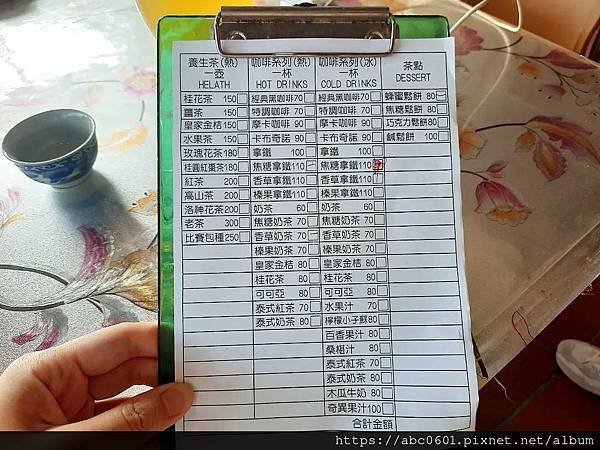 養生茶(熱)
一壺
HELATH
桂花茶 150
薑茶 150
皇家金桔 150
水果茶 150
玫瑰花茶 180
桂圓紅棗茶 180
紅茶 200
高山茶 200
洛神花茶 200
老茶 300
比賽包種 250
咖啡系列(熱)
一杯
HOT DRINKS
經典黑咖啡 70
特調咖啡 70
摩卡咖啡 90
卡布奇諾 90
拿鐵 100
焦糖拿鐵 110
香草拿鐵 110
榛果拿鐵 110
奶茶 60
焦糖奶茶 70
香草奶茶 70
榛果奶茶 70
皇家金桔 80
桂花茶 80
可可亞 80
泰式紅茶 70
泰式奶茶 80
咖啡系列(冰)
一杯
COLD DRINKS
經典黑咖啡 70
特調咖啡 70
摩卡咖啡 90
卡布奇諾 90
拿鐵 100
焦糖拿鐵 110
香草拿鐵 110
榛果拿鐵 110
奶茶 60
焦糖奶茶 70
香草奶茶 70
榛果奶茶 70
皇家金桔 80
桂花茶 80
可可亞 80
水果汁 70
檸檬小子酥 80
百香果汁 80
桑椹汁 80
泰式紅茶 70
泰式奶茶 80
木瓜牛奶 80
奇異果汁 100
茶點
DESSERT
蜂蜜鬆餅 80
焦糖鬆餅 80
巧克力鬆餅 80
鹹鬆餅 100
合計金額
https://abc0601.pixnet.net/album